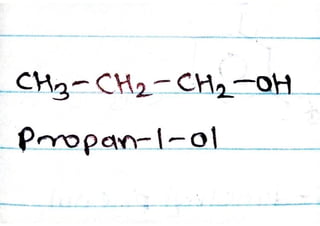 CH₃-CH₂-CH₂-OH
Propan-1-ol